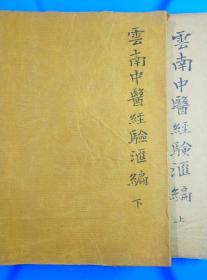 雲南中醫经驗滙編
下
雲南中醫经驗滙編
上